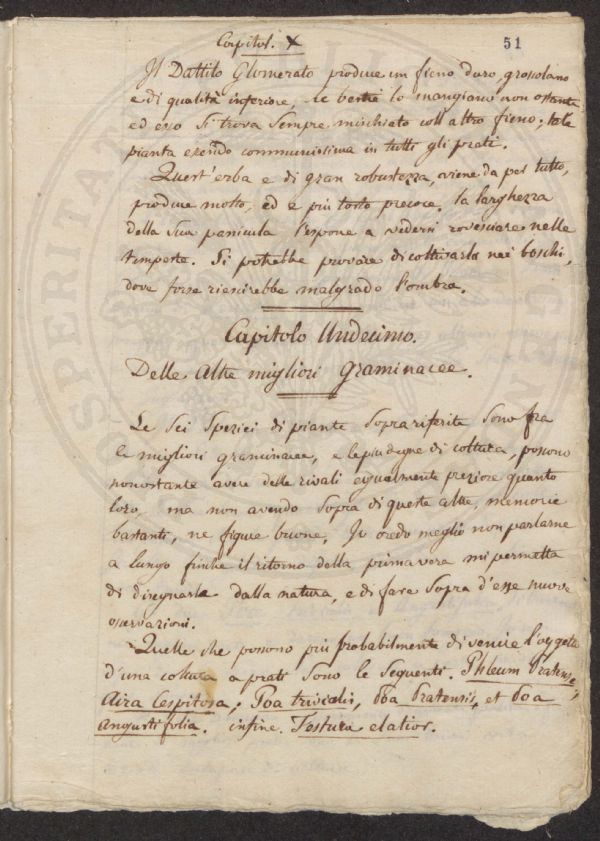 Capitol. X
51
Il Dattilo Glomerato produce un fieno duro, grossolano
e di qualità inferiore, le bestie lo mangiano non ostante
ed esso si trova sempre mischiato coll'altro fieno; tale
pianta essendo communissima in tutti gli prati.
Quest'erba e di gran robustezza, viene da per tutto,
produce molto, ed e più tosto precoce. la larghezza
della sua panicula l'espone a vedersi rovesciare nelle
tempeste. Si potrebbe provare di coltivarla nei boschi,
dove forse riescirebbe malgrado l'ombra.
Capitolo Undecimo.
Delle altre migliori graminacee.
Le sei spezici di piante sopra riferite sono fra
le migliori graminacee, e le piu degne di coltura, possono
nonostante avere delle rivali egualmente preziose quanto
loro, ma non avendo sopra di queste altre, memorie
bastanti, ne figure buone, Io credo meglio non parlarne
a lungo finche il ritorno della primavera mi permetta
di disegnarle dalla natura, e di fare sopra d'esse nuove
osservazioni.
Quelle che possono più probabilmente divenire l'oggetto
d'una coltura a prati sono le seguenti. Phleum Pratense,
Aira Cespitosa; Poa trivialis, Poa Pratensis, et Poa
angustifolia. infine. Festuca elatior.